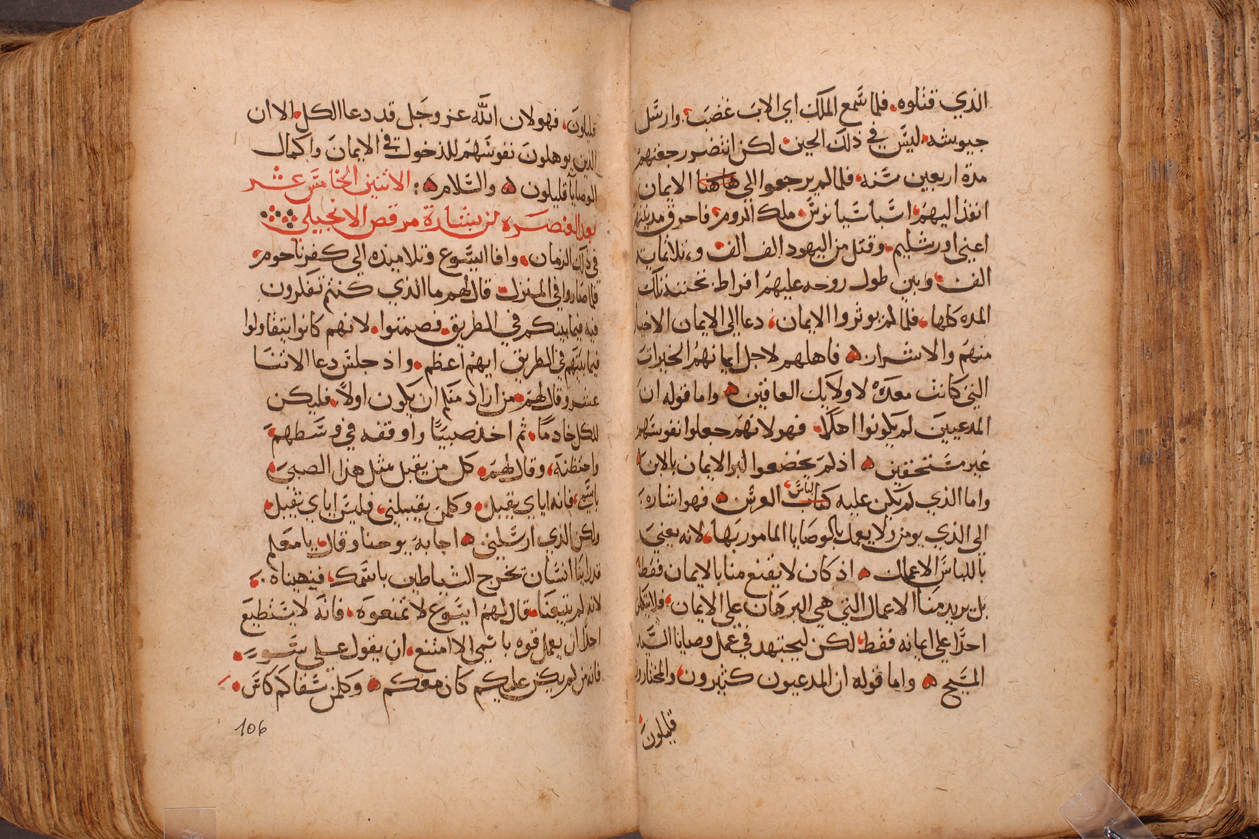 الذي قتلوه فلما سمع الملك اي الاب غضب وارسل
جيوشه ليس في ذلك الحين لكن انتضر رجعتهم
مدة اربعين سنه فلما لم يرجعوا الي هاهنا الايمان
انفذ اليهم اسباسيانوس ملك الروم فاحرق مدينتهم
اعني اورشليم وقتل من اليهود الف الف و ثلاثماية
الف وابين طول روحه عليهم افراط تحننه تلك
المده كلها فلما لم يوثروا الايمان دعا الي الايمان الاخيار
منهم والاشرار فاهلهم لاجل ايمانهم الخيرات
التي كانت معده لاولايك العاقين واما قوله ان
المدعيين لم يكونوا اهلا فهو لانهم جعلوا نفوسهم
غير مستحقين اذ لم يخضعوا البر الايمان بالابن
واما الذي لم تكن عليه لباس العرس فهو اشاره
الي الذي يومن ولا يعمل بالوصايا المامور بها لانه يعني
باللباس الاعمال اذ كان لا يقنع منا بالايمان فقط
بل يريد منا الاعمال التي هي البرهان علي الايمان فلا يتكل
احدا علي ايمانه فقط لكن ليجتهد في عمل وصايا السيد
المسيح واما قوله ان المدعيون كثيرون والمختارون
قليلون
قليلون فهو لان الله عز وجل قد دعا الكل الا ان
الذين يوهلون نفوسهم للدخول في الايمان واكمال
الوصايا قليلون والسلام الاثنين الخامس عشر
بعد العنصره من بشارة مرقص الانجيلي
في ذلك الزمان وافا ايسوع وتلاميذه الي كفرناحوم
فلما صاروا في المنزل قال لهم ما الذي كنتم تفكرون
فيه فيما بينكم في الطريق فصمتوا لانهم كانوا يتقاولوا
فيما بينهم في الطريق ايهم اعظم واذ جلس دعا الاثنا
عشر وقال لهم من اراد منكم ان يكون اولا فليكن
للكل خادما ثم اخذ صبيا واوقفه في وسطهم
واحتظنه وقال لهم كل من يقبل مثل هذا الصبي
باسمي فانه اياي يقبل وكلمن يقبلني فليس اياي يقبل
ولكن الذي ارسلني اجابه يوحنا وقال يا معلم
قد راينا انسان يخرج الشياطين باسمك فنهيناه
لانه لم يتبعنا قال لهم ايسوع لا تمنعوه فانه لا تستطيع
احدا ان يعمل قوه باسمي الا امتنع ان يقول علي سو
فانه من لم يكن عليكم كان معكم وكلمن سقاكم كاس
106